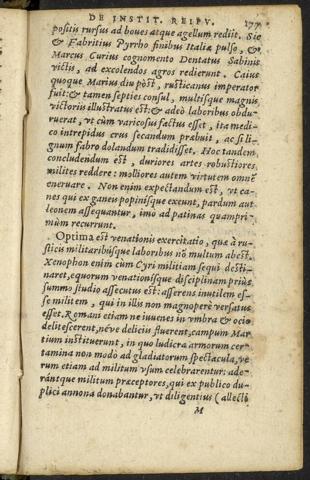 DE INSTIT. REIPV. 177
positis rursus ad boues atque agellum rediit. Sic
& Fabritius Pyrrho finibus Italiæ pulso, &
Marcus Curius cognomento Dentatus Sabinis
victis, ad excolendos agros redierunt. Caius
quoque Marius diu pòst, rusticanus imperator
fuit: & tamen septies consul, multisque magnis
victoriis illustratus est: & adeò laboribus obdu-
ruerat, vt cùm varicosus factus esset, ita medi-
co intrepidus crus secandum præbuit, ac si li-
gnum fabro dolandum tradidisset. Hoc tandem
concludendum est, duriores artes robustiores
milites reddere: molliores autem virtutem omnẽ
eneruare. Non enim expectandum est, vt ca-
nes qui ex ganeis popinisque exeunt, pardum aut
leonem assequantur, imo ad patinas quampri-
mùm recurrunt.
Optima est venationis exercitatio, quæ à ru-
sticis militaribúsque laboribus nõ multum abest.
Xenophon enim cùm Cyri militiam sequi desti-
naret, equorum venationísque disciplinam priùs
summo studio assecutus est: asserens inutilem es-
se militem, qui in illis non magnopere versatus
esset. Romani etiam ne iuuenes in vmbra & ocio
delitescerent, néve deliciis fluerent, campum Mar
tium instituerunt, in quo ludicra armorum cer-
tamina non modò ad gladiatorum spectacula, ve
rum etiam ad militum vsum celebrarentur: ade-
rántque militum præceptores, qui ex publico du-
plici annona donabantur, vt diligentius (allecti
M